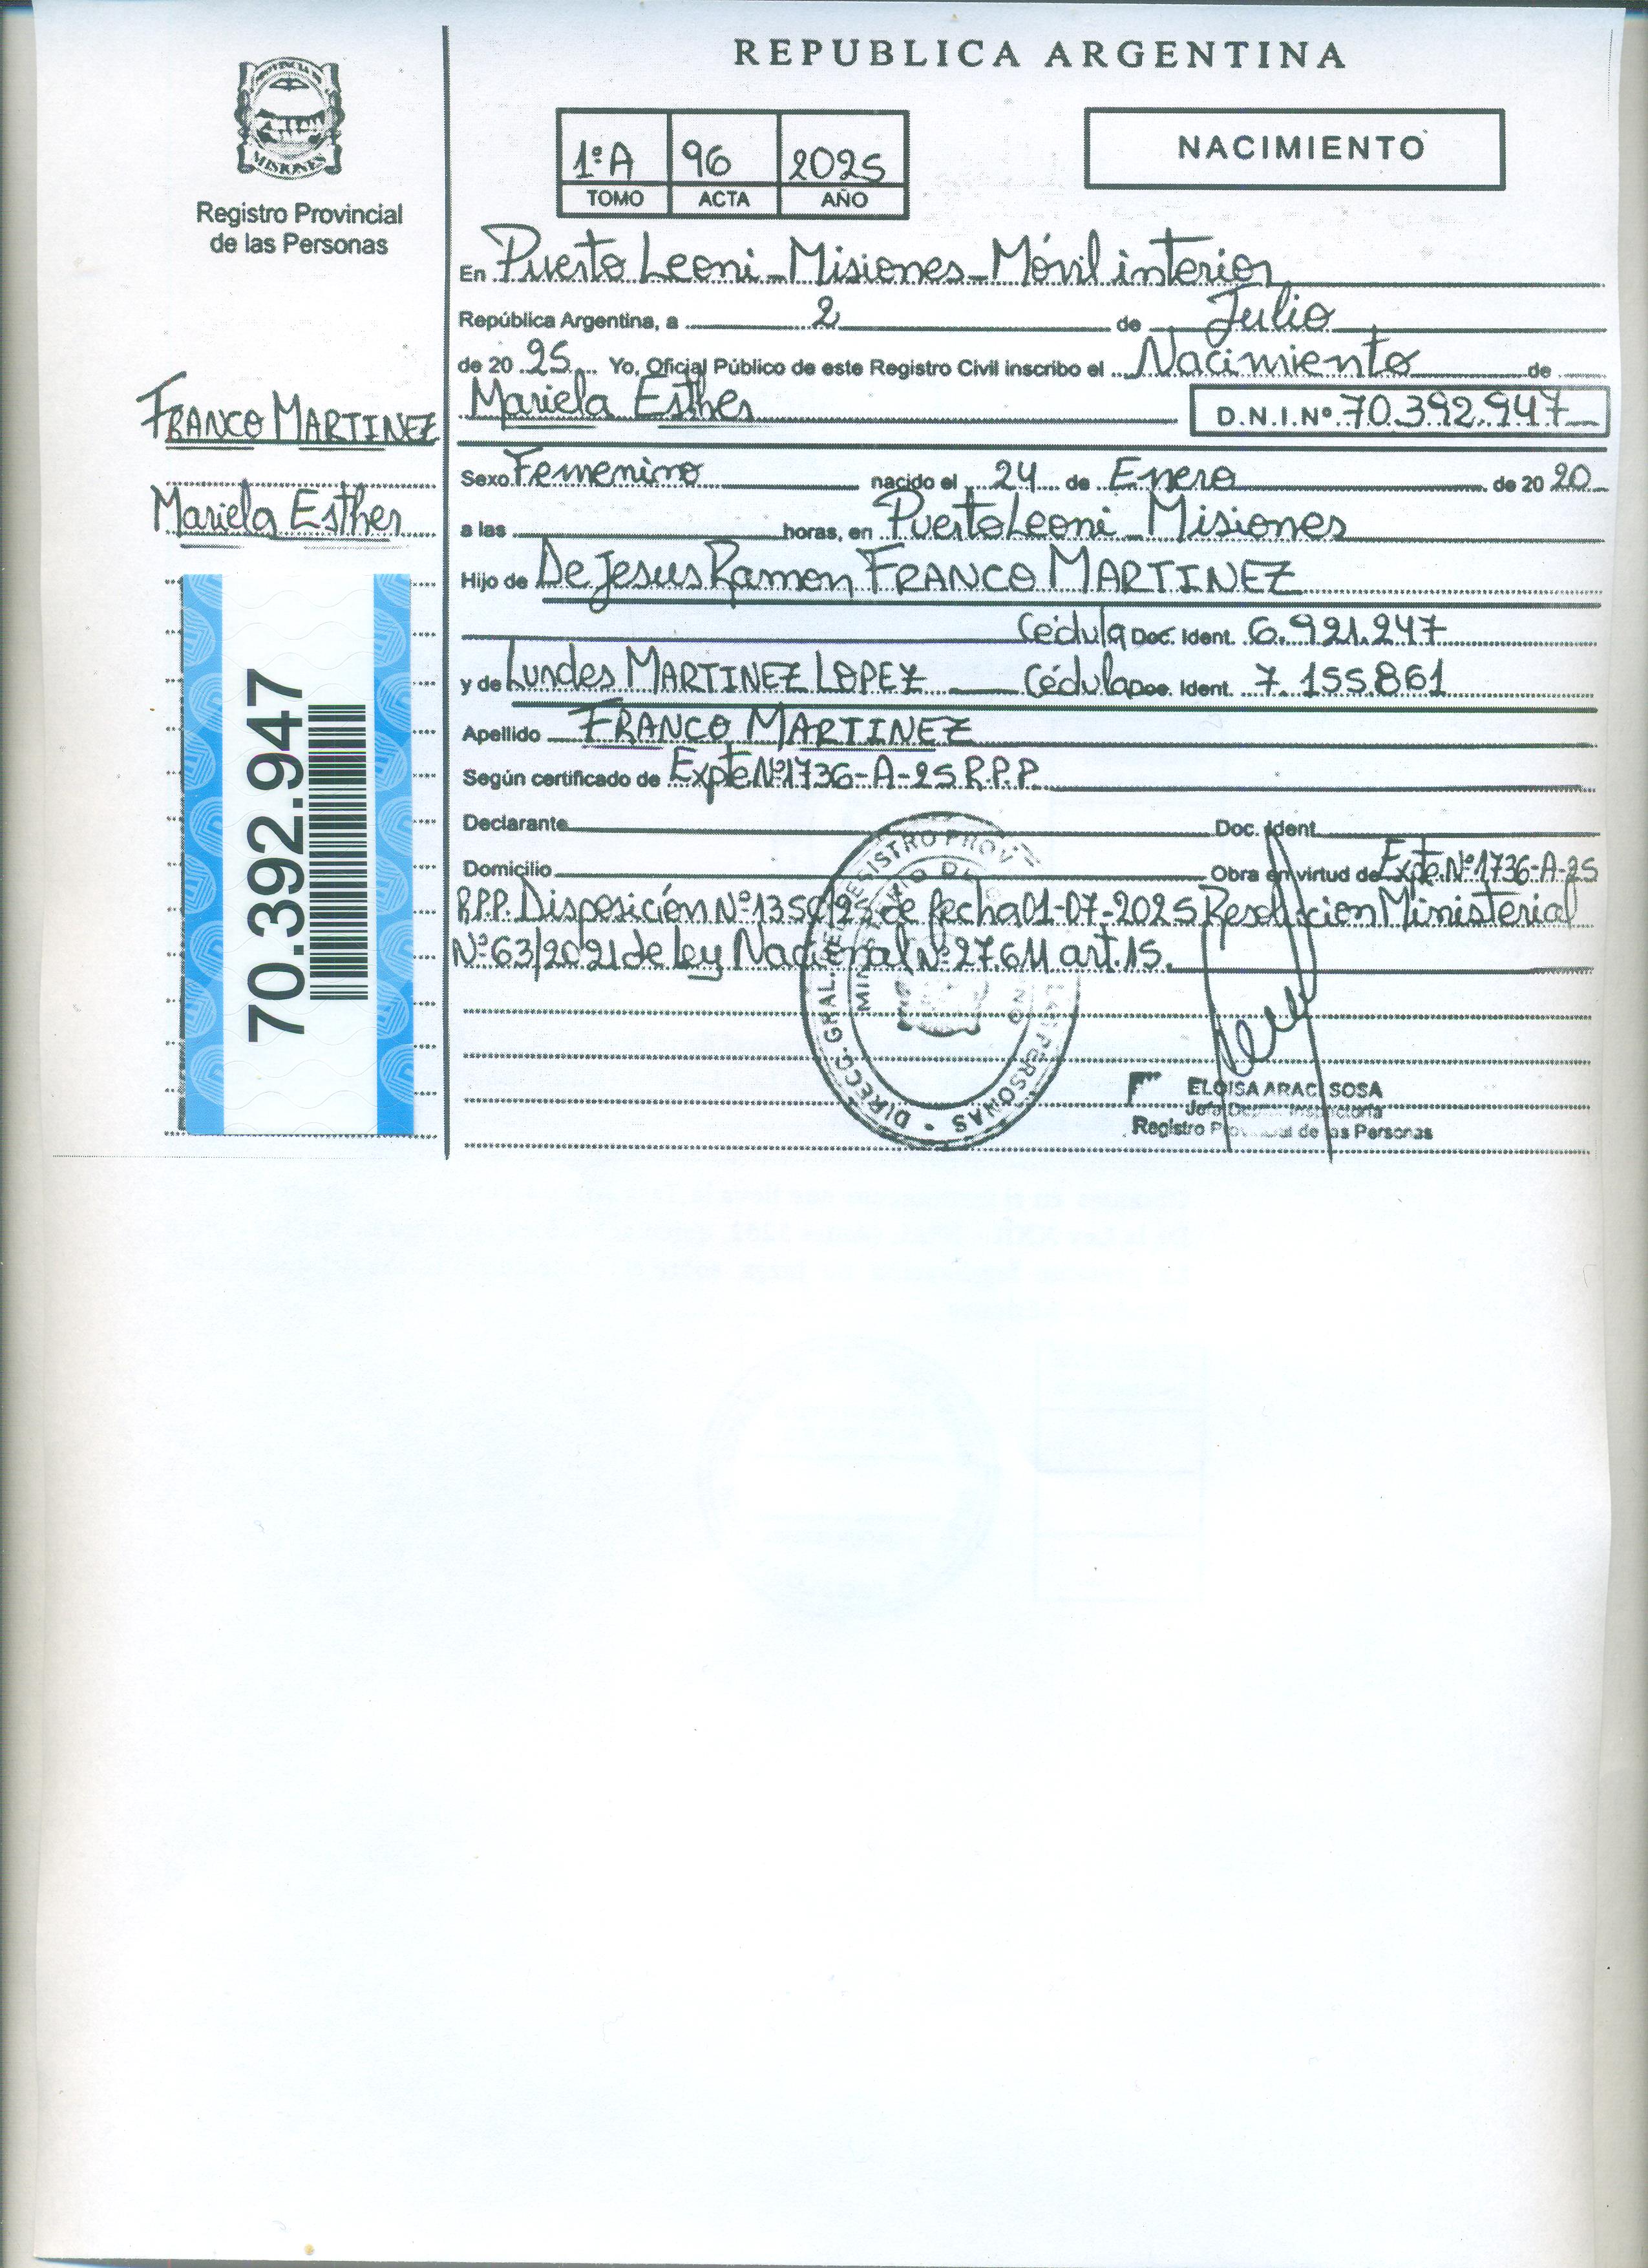 REPUBLICA ARGENTINA
PROVINCIA DE
MISIONES
Registro Provincial
de las Personas
1ºA 96 2025
TOMO ACTA AÑO
NACIMIENTO
En Puerto Leoni - Misiones - Móvil interior
República Argentina, a 2 de Julio
de 20 25 Yo, Oficial Público de este Registro Civil inscribo el Nacimiento de
Mariela Esther D.N.I.Nº 70.392.947
FRANCO MARTINEZ
Mariela Esther
70.392.947
Sexo Femenino nacido el 24 de Enero de 20 20
a las horas, en Puerto Leoni Misiones
Hijo de De Jesus Ramon FRANCO MARTINEZ
Cédula Doc. Ident. 6.921.247
y de Lundes MARTINEZ LOPEZ Cédula Doc. Ident. 7.155.861
Apellido FRANCO MARTINEZ
Según certificado de Expte Nº1736-A-25 R.P.P.
Declarante Doc. Ident.
Domicilio Obra en virtud de Expte. Nº1736-A-25
R.P.P. Disposición Nº 1350/25 de fecha 01-07-2025 Resolucion Ministerial
Nº 63/2021 de Ley Nacional Nº 27.611 art. 15.
DIRECC. GRAL. DEL REGISTRO PROV. PERSONAS
ELOISA ARACI SOSA
Registro Provincial de las Personas